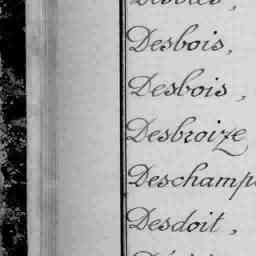 Desbois,
Desbois,
Desbroize
Deschamps
Desdoit,